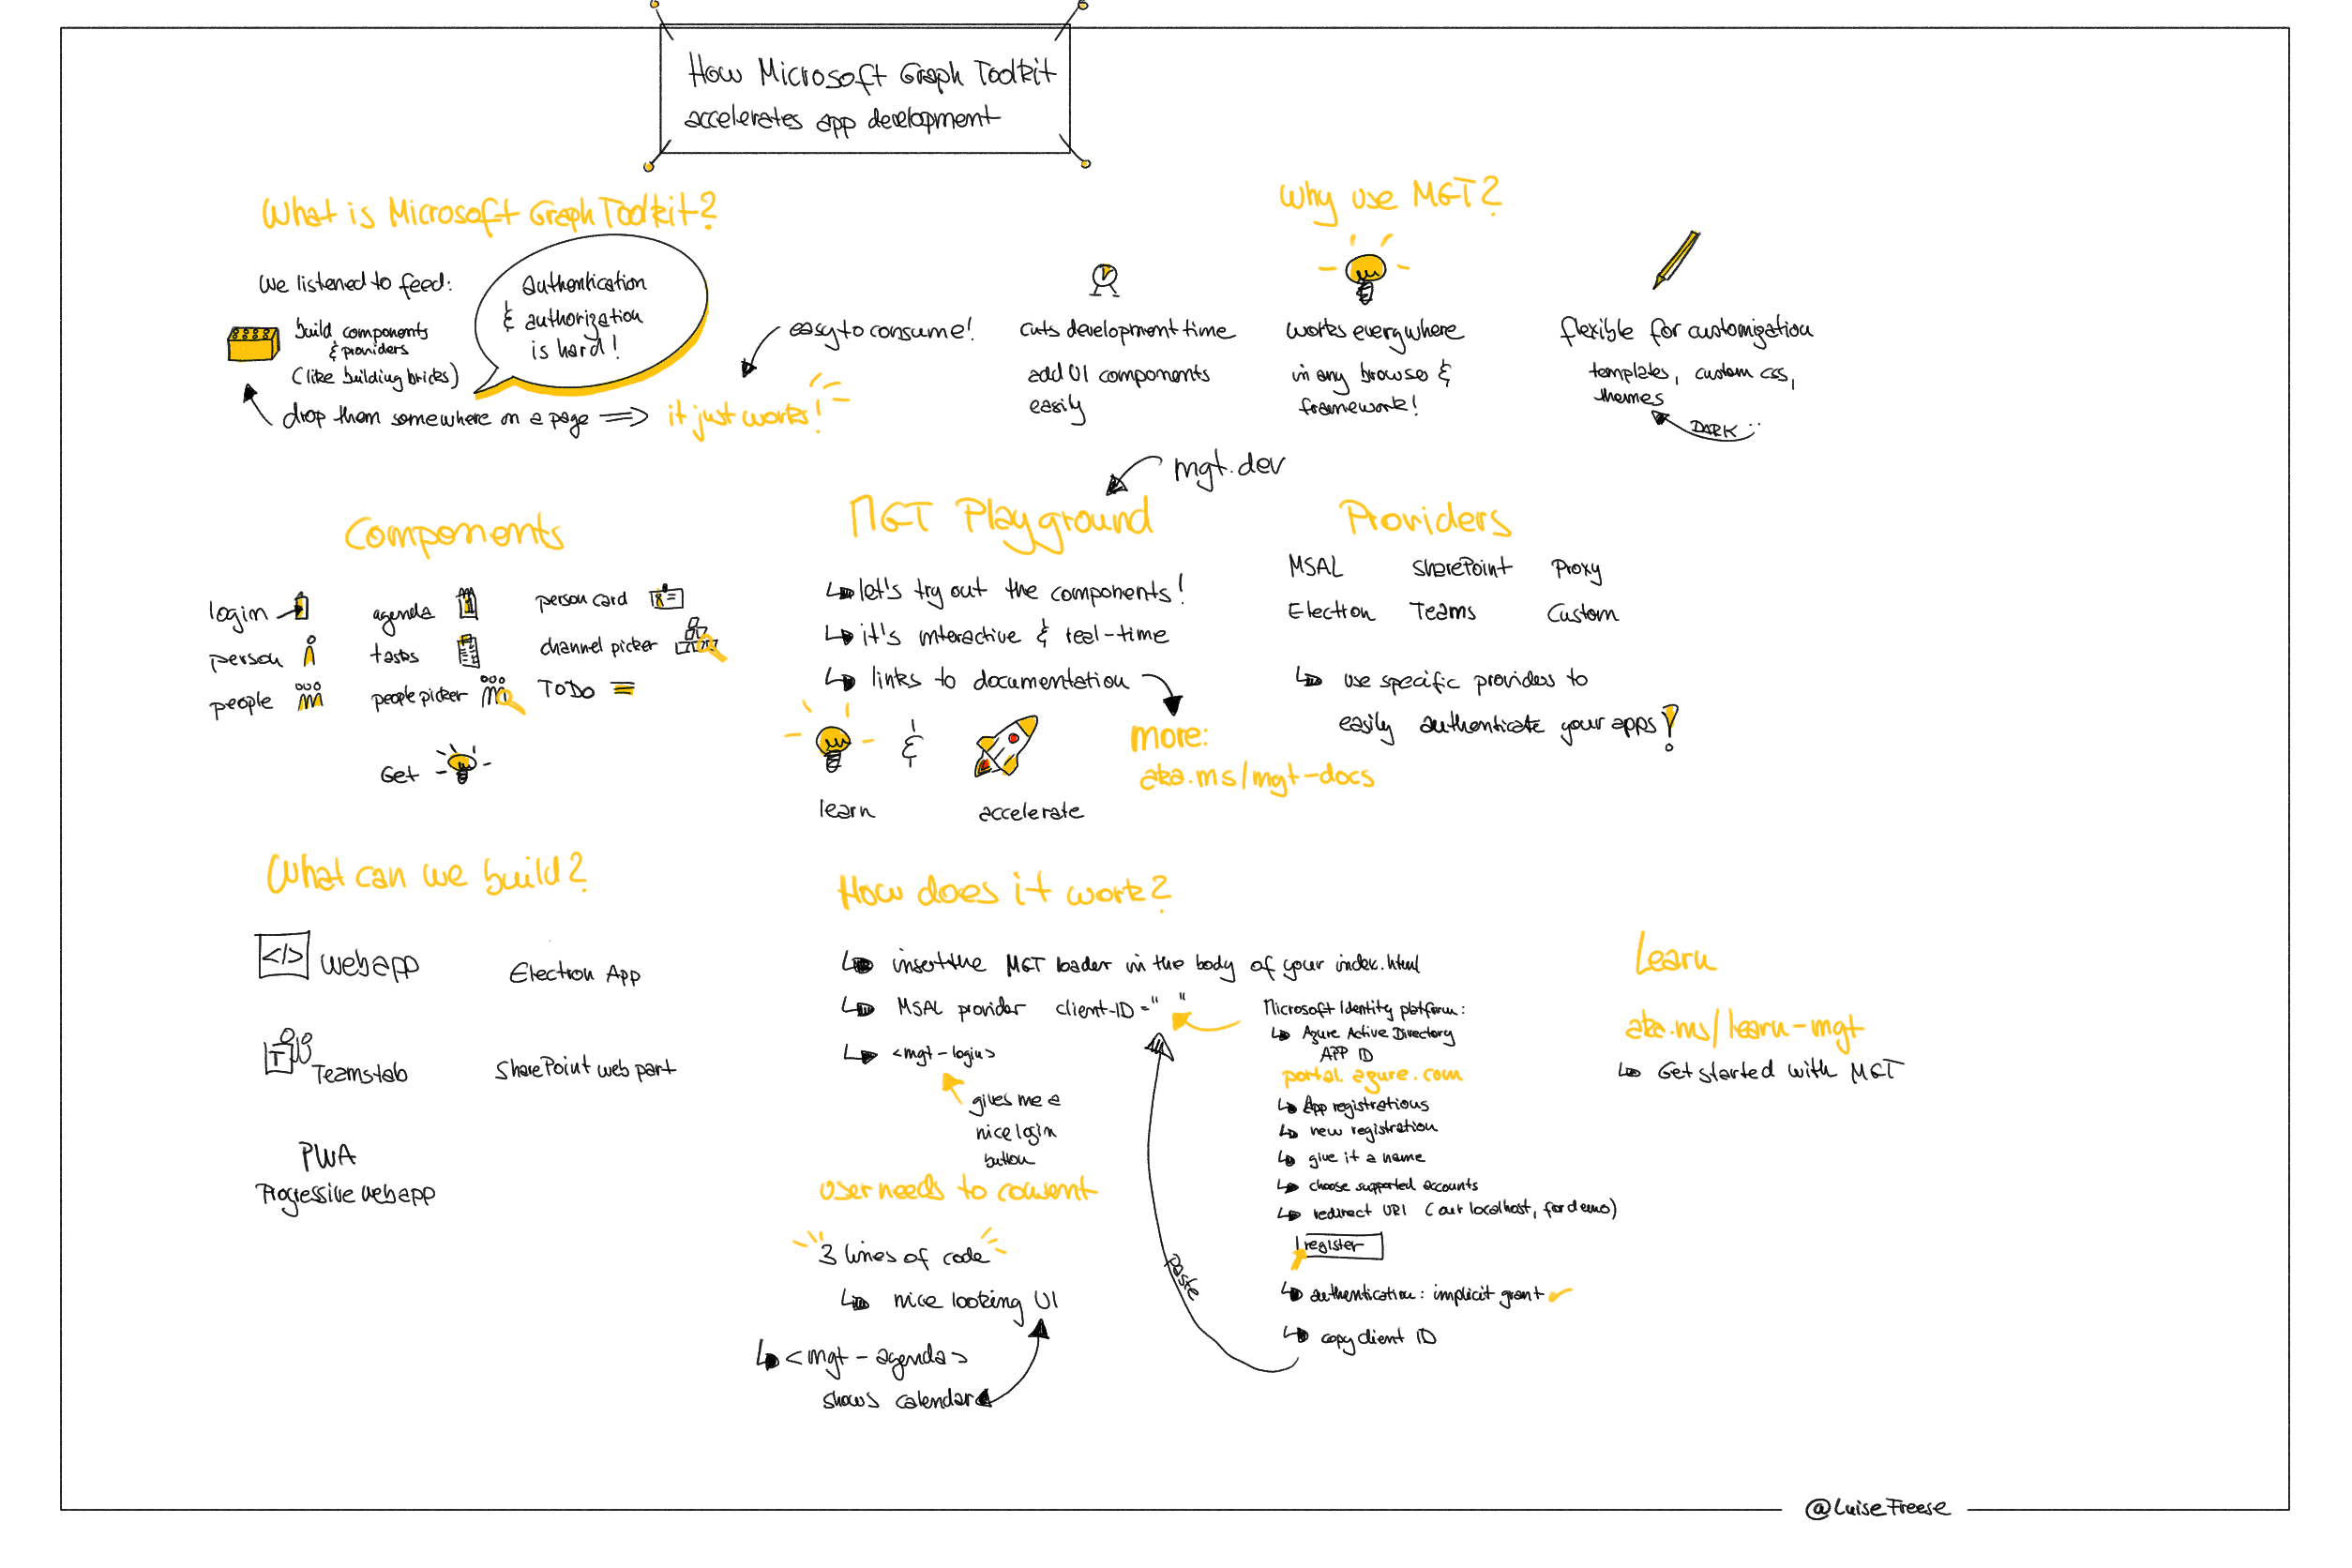 How Microsoft Graph Toolkit
accelerates app development
What is Microsoft Graph Toolkit?
We listened to feed:
Authentication
& authorization
is hard!
build components
& providers
(like building bricks)
drop them somewhere on a page
it just works!
easy to consume!
Why use MGT?
cuts development time
add UI components
easily
works everywhere
in any browse &
framework!
flexible for customization
templates, custom css,
themes
DARK
Components
login
agenda
person card
person
tasks
channel picker
people
people picker
ToDo
Get
mgt.dev
MGT Playground
let's try out the components!
it's interactive & real-time
links to documentation
&
learn
accelerate
more:
aka.ms/mgt-docs
Providers
MSAL SharePoint Proxy
Electron Teams Custom
use specific providers to
easily authenticate your apps!
What can we build?
</> webapp
Electron App
T Teamstab
SharePoint web part
PWA
Progressive webapp
How does it work?
insert the MGT loader in the body of your index.html
MSAL provider client-ID = " "
<mgt-login>
gives me a
nice login
button
user needs to consent
3 lines of code
nice looking UI
<mgt-agenda>
shows calendar
paste
Microsoft Identity platform:
Azure Active Directory
APP ID
portal.azure.com
App registrations
new registration
give it a name
choose supported accounts
redirect URI (our localhost, for demo)
register
authentication: implicit grant
copy client ID
Learn
aka.ms/learn-mgt
Get started with MGT
@LuiseFreese